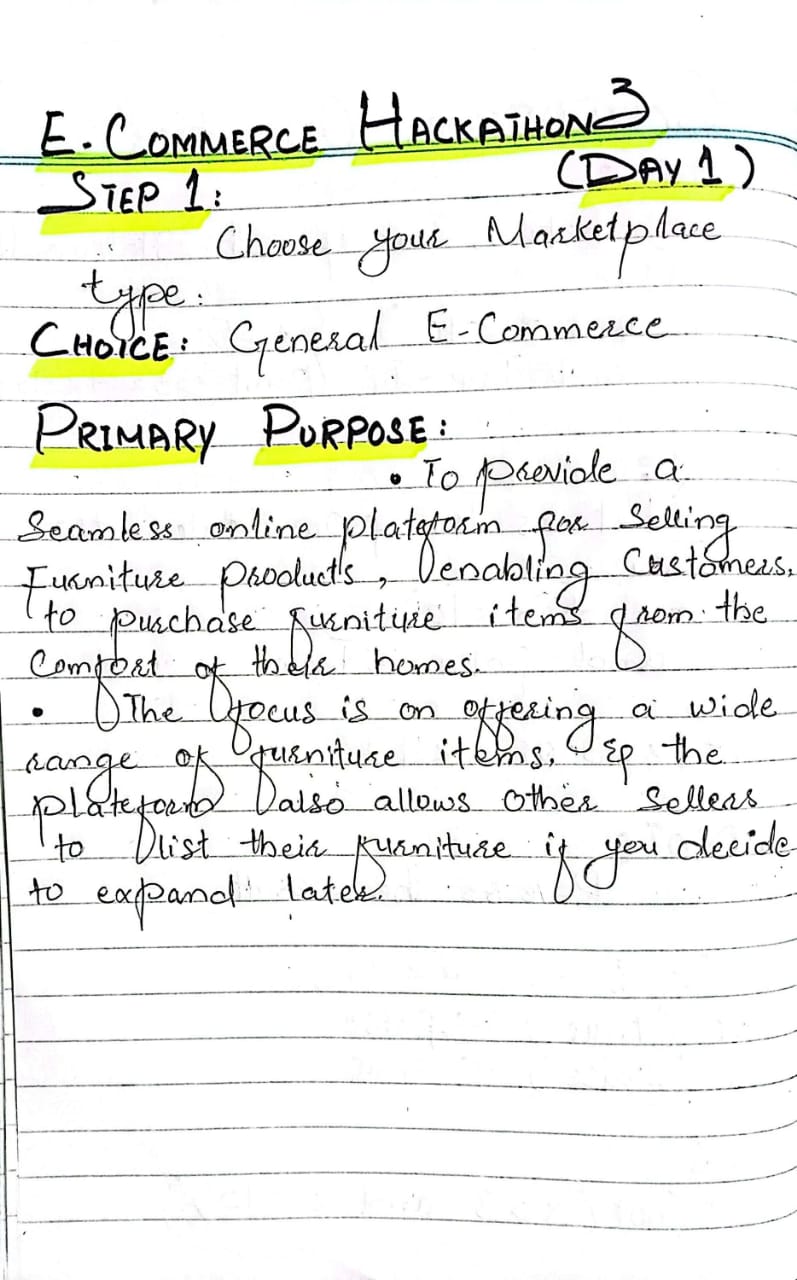 E-COMMERCE HACKATHON 3
(DAY 1)
STEP 1:
Choose your Marketplace
type.
CHOICE: General E-Commerce
PRIMARY PURPOSE:
• To previde a
Seamless online plateform for Selling
Furniture products, enabling Customers,
to purchase furniture items from the
Comfort of their homes.
• The focus is on offering a wide
range of furniture items. & the
plateform also allows other Sellers
to list their furniture if you decide
to expand later.